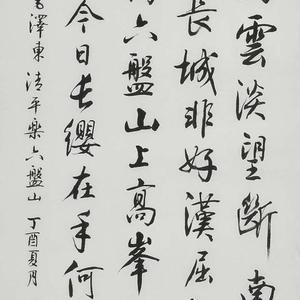 雲淡望斷南
長城非好漢屈
六盤山上高峯
今日長纓在手何
毛澤東 清平樂六盤山 丁酉夏月